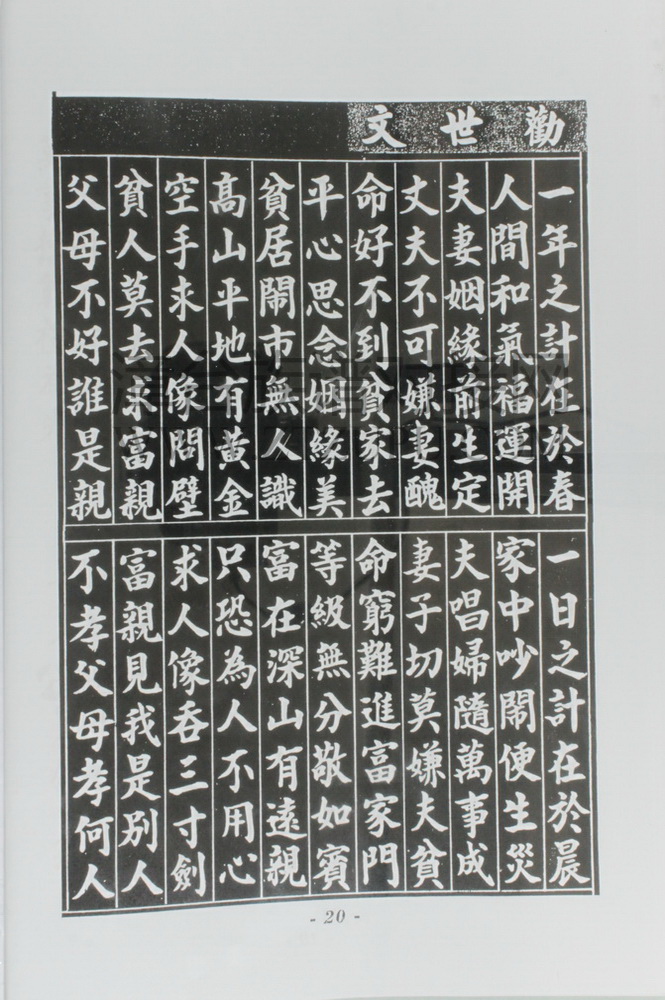 勸世文
一年之計在於春
人間和氣福運開
夫妻姻緣前生定
丈夫不可嫌妻醜
命好不到貧家去
平心思念姻緣美
貧居鬧市無人識
高山平地有黃金
空手求人像問壁
貧人莫去求富親
父母不好誰是親
一日之計在於晨
家中吵鬧便生災
夫唱婦隨萬事成
妻子切莫嫌夫貧
命窮難進富家門
等級無分敬如賓
富在深山有遠親
只恐為人不用心
求人像吞三寸劍
富親見我是別人
不孝父母孝何人
- 20 -